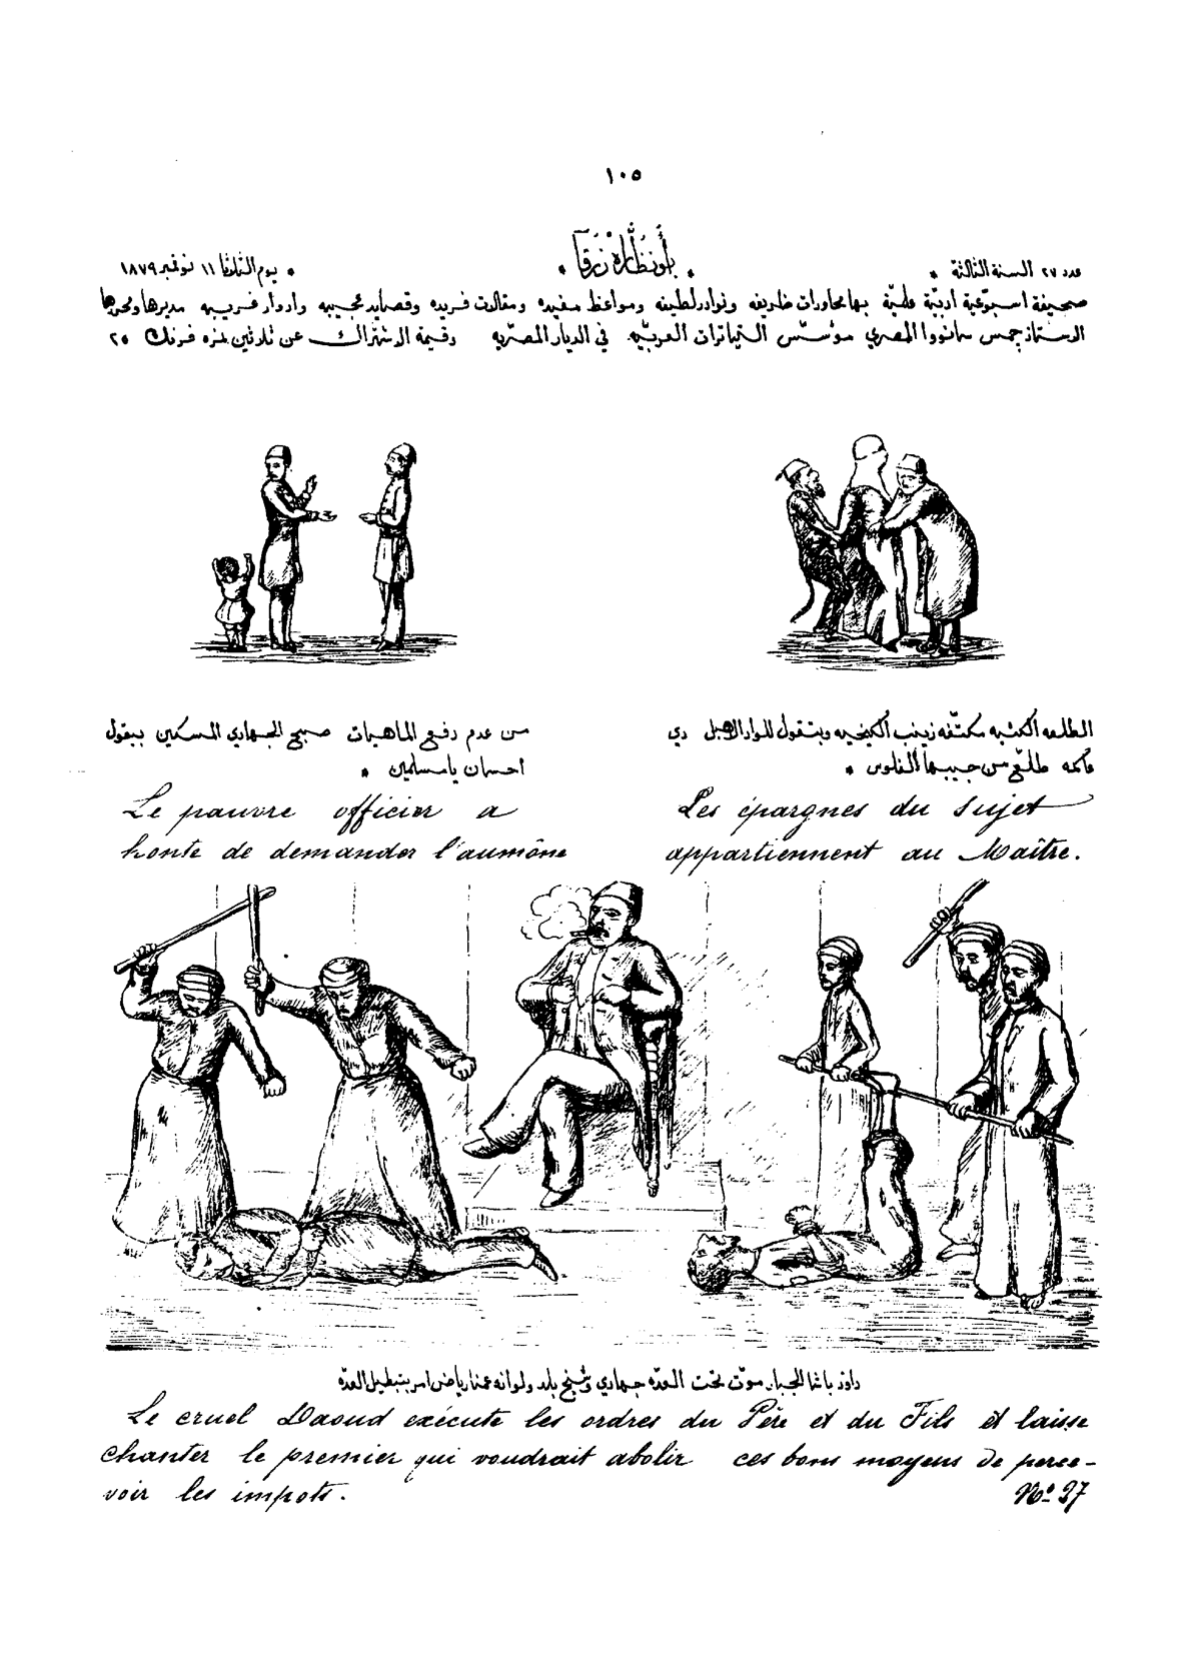 ١٠٥
عدد ٢٧ السنة الثالثة *
* أبو نظّارة زرقا *
* يوم الثلاثا ١١ نوفمبر ١٨٧٩
صحيفة اسبوعية ادبيّة علميّة بها محاورات ظريفه ونوادر لطيفه ومواعظ مفيده ومقالات فريده وقصايد عجيبه وادوار غريبه مديرها ومحررها
الاستاذ جمس سانووا المصري مؤسّس التياترات العربيّه في الديار المصريّه وقيمة الاشتراك عن ثلاثين نمره فرنك ٢٥
من عدم دفع الماهيات صبح الجهادي المسكين بيقول
احسان يا مسلمين *
Le pauvre officier a
honte de demander l'aumône
مكتّفه زينب وبتقول للواد دي
طلّع من جيبها الفلوس *
Les épargnes du sujet
appartiennent au Maître.
داود باشا الجبار موّت تحت العدّه جهادي وشيخ بلد ولوانه عمنا رياض امر بتبطيل العدّه
Le cruel Daoud exécute les ordres du Père et du Fils et laisse
chanter le premier qui voudrait abolir ces bons moyens de perce-
voir les impots.
Nº 27